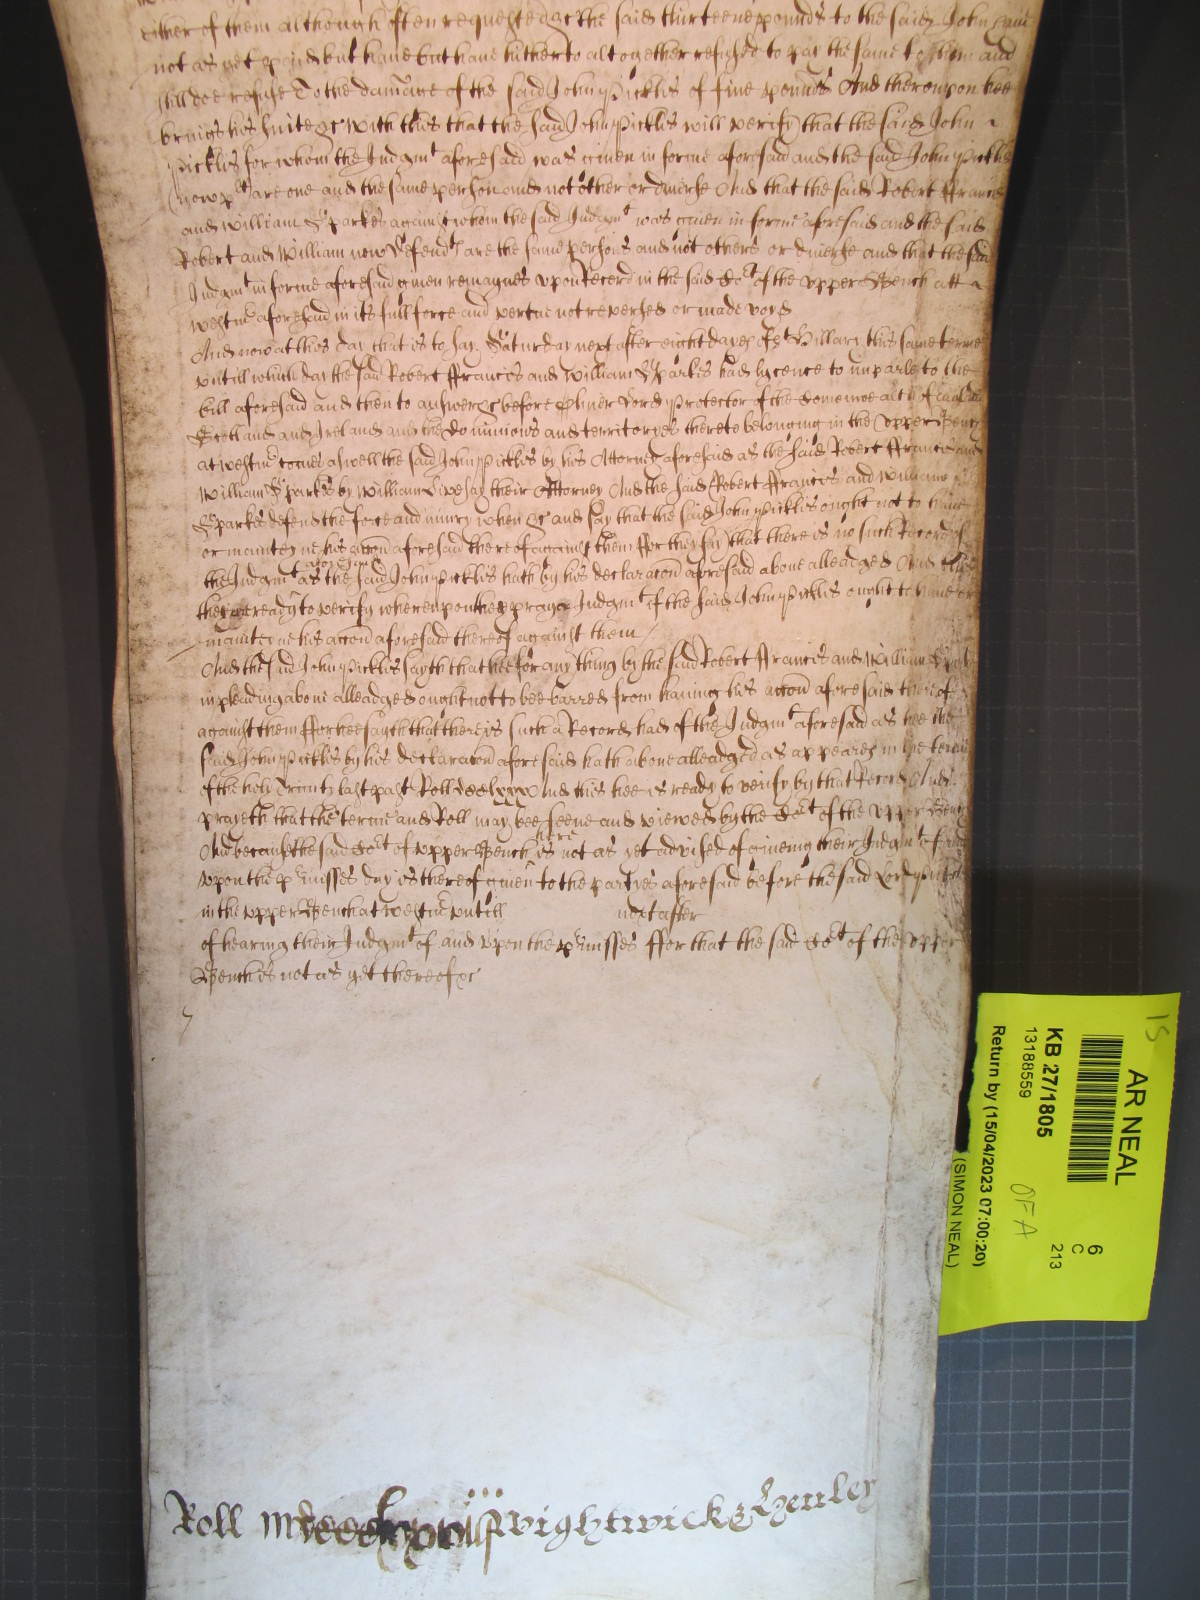 either of them although often requested &c the said thirteene pounds to the said John have
not as yet paid but have but have hitherto altogether refused to pay the same to him and
still doe refuse To the damage of the said John Picklis of five pounds And thereupon hee
brings his suite &c with this that the said John Picklis will verify that the said John
Picklis for whom the Judgmt aforesaid was given in forme aforesaid and the said John Picklis
now plt are one and the same person and not other or diverse And that the said Robert Francis
and William Sparkes against whom the said Judgmt was given in forme aforesaid and the said
Robert and William now Defendts are the same persons and not others or diverse and that the said
Judgmt in forme aforesaid given remaynes upon Record in the said Cot of the upper Bench att
Westmr aforesaid in its full force and vertue not reversed or made voyd
And now at this day that is to say Saturday next after eight dayes of St Hillary this same terme
untill which day the said Robert Francis and William Sparkes had lycence to imparle to the
bill aforesaid and then to answer &c before Oliver Lord Protector of the Comonwealth of England
Scotland and Ireland and the Dominions and territoryes thereto belonging in the upper Bench
at Westmr comes aswell the said John Picklis by his Attorney aforesaid as the said Robert Francis and
William Sparkes by William Livesay their Attorney And the said Robert Francis and William
Sparkes defend the force and iniury when &c and say that the said John Picklis ought not to have
or mainteyne his accon aforesaid thereof against them For they say that there is no such Record of
the Judgmt aforesaid as the said John Picklis hath by his declaracon aforesaid above alleadged And this
they are ready to verify whereupon they pray Judgmt if the said John Picklis ought to have or
mainteyne his accon aforesaid thereof against them
And the said John Picklis sayth that hee for any thing by the said Robert Francis and William Sparkes
in pleading above alleadged ought not to bee barred from having his accon aforesaid thereof
against them For hee sayth that there is such a Record had of the Judgmt aforesaid as hee the
said John Picklis by his declaracon aforesaid hath above alleadged as appeares in the terme
of the holy Trinity last past Roll And this hee is ready to verify by that Record And
prayeth that the terme and Roll may bee seene and viewed by the Cot of the upper Bench
And because the said Cot of upper Bench here is not as yet advised of giveing their Judgmt of and
upon the pmisses day is thereof given to the partyes aforesaid before the said Lord Protector
in the upper Bench at Westmr untill next after
of hearing their Judgmt of and upon the pmisses For that the said Cot of the upper
Bench is not as yet thereof &c
Roll Wightwicke & Henley
AR NEAL
6
C
213
KB 27/1805
13188559
OFA
Return by (15/04/2023 07:00:20)
(SIMON NEAL)
15